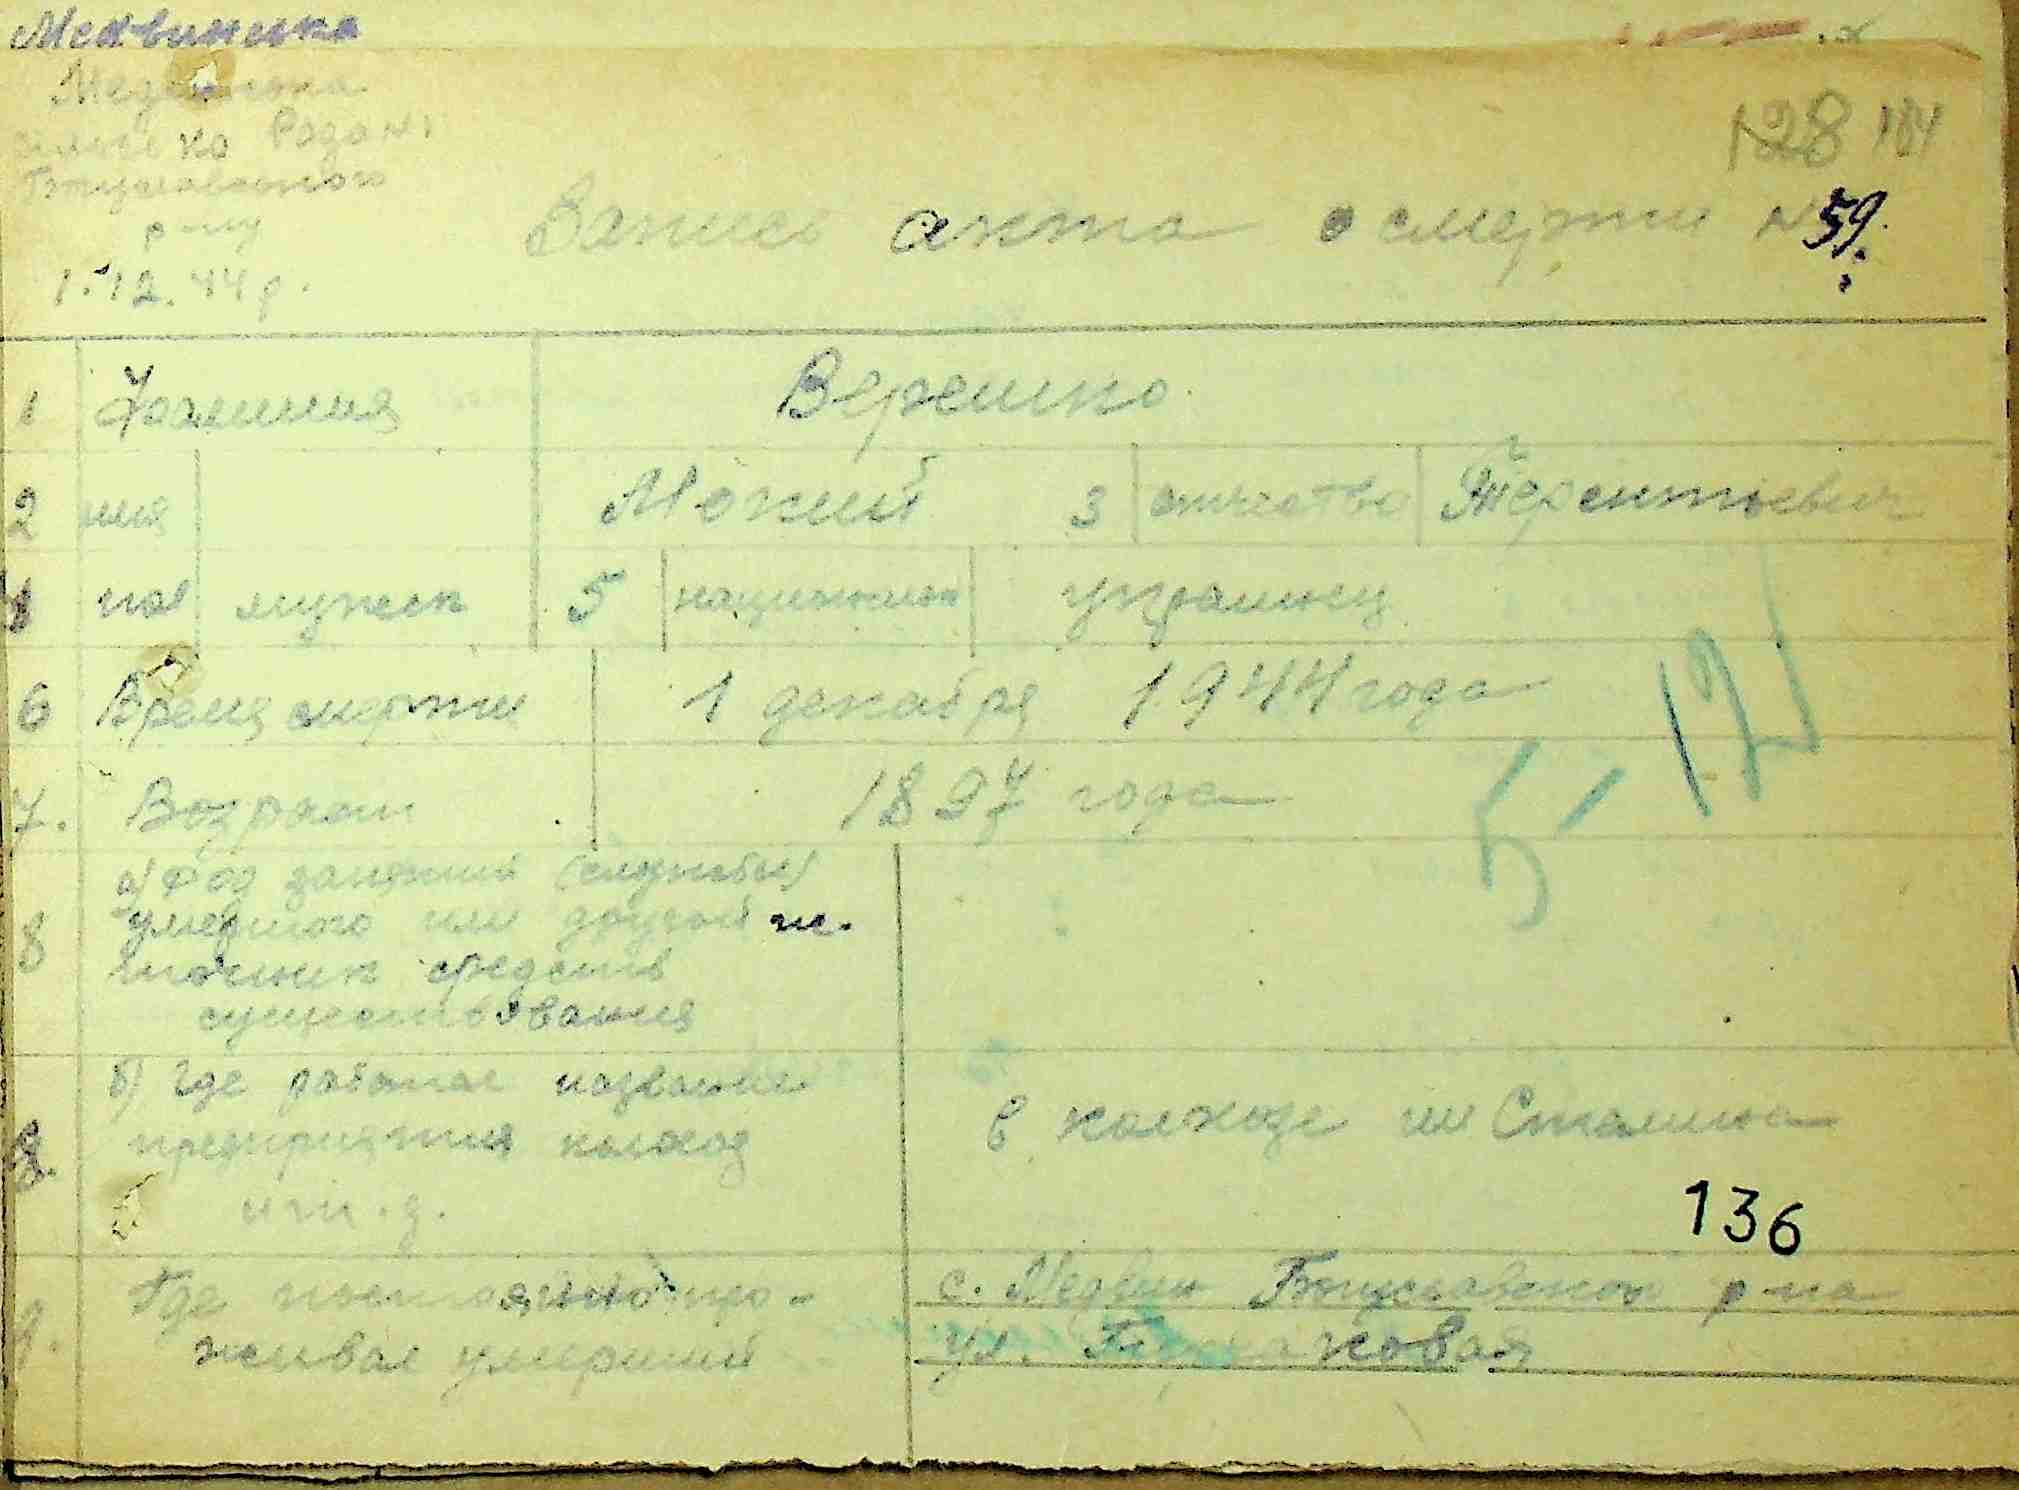 Медвинська
Медвинська
сільська Рада
Богуславского
р-ну
1.12.44 р.
128 134
Запись акта о смерти № 59.
1 Фамилия Верешко
2 имя Мокий 3 отчество Терентьевич
пол мужск 5 национальн украинец
6 Время смерти 1 декабря 1944 года
7. Возраст 1897 года
5, 12
8 а) Род занятий (службы)
умершого или другой ис-
точник средств
существования
б) Где работал название
предприятия колхоз
и т.д.
в колхозе им Сталина
136
9. Где постоянно про-
живал умерший
с. Медвин Богуславского р-на
ул.